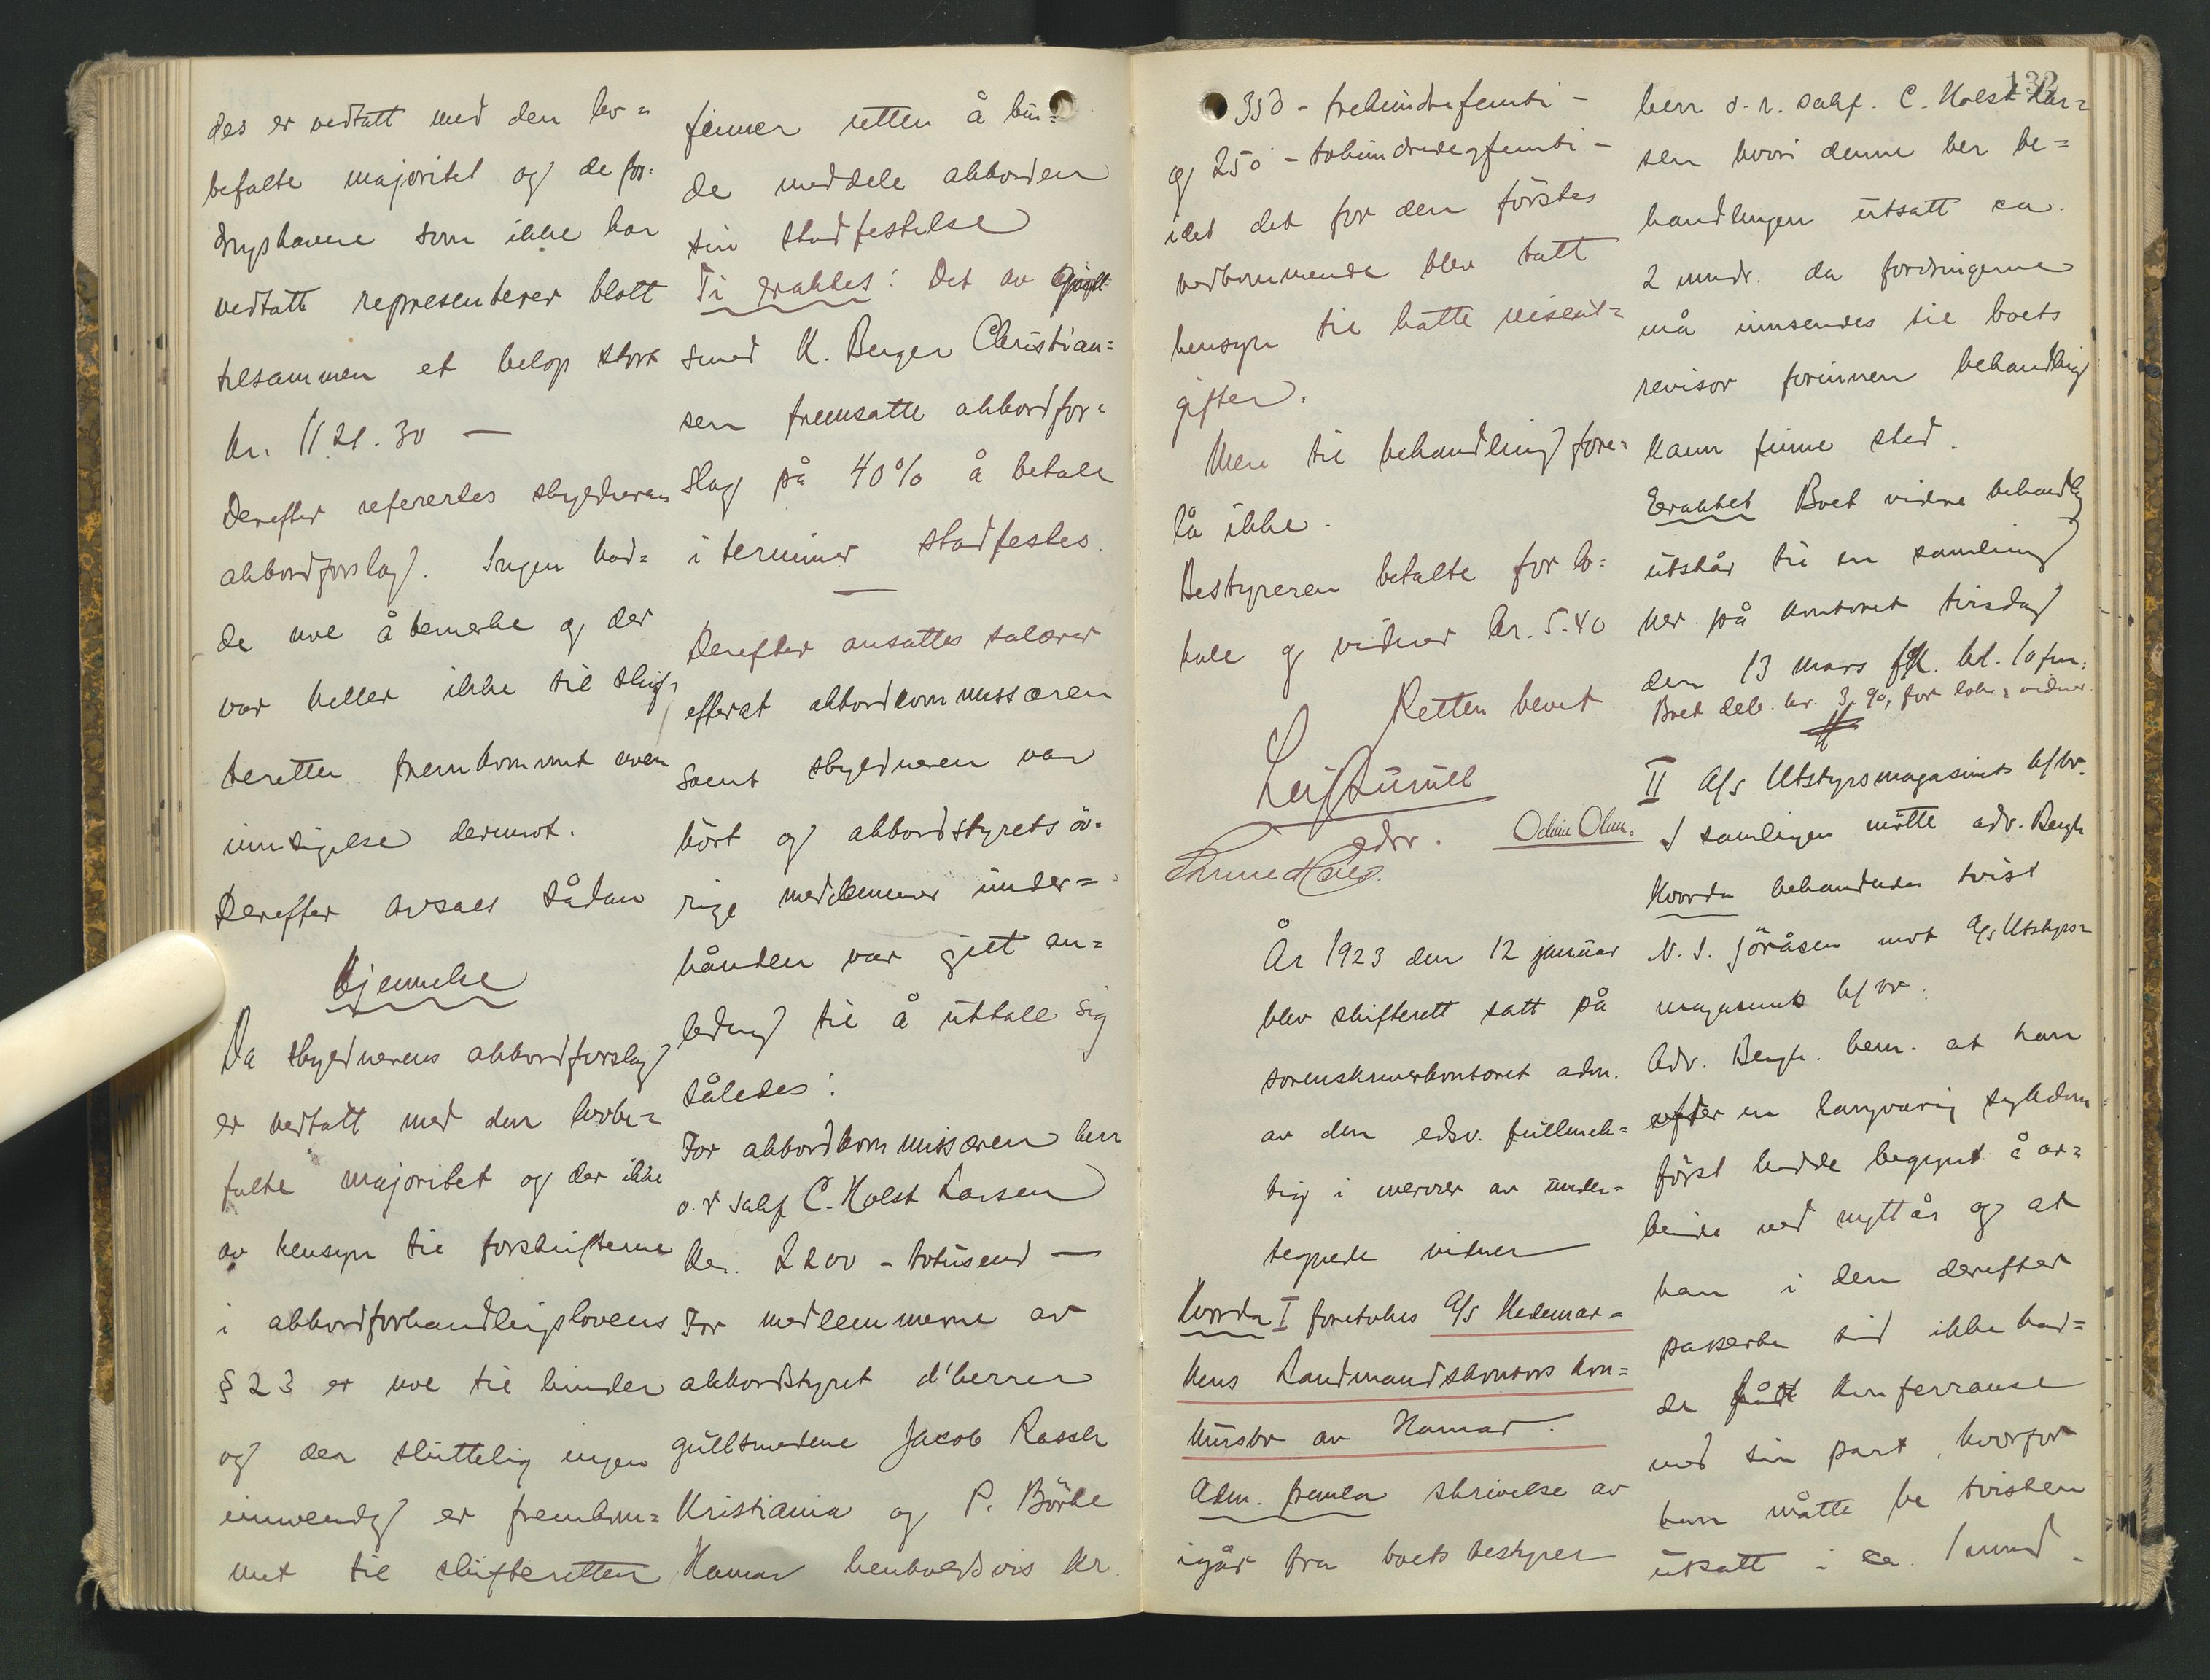 des er vedtatt med den lov=
befalte majoritet og de for=
dringshavere som ikke har
vedtatt representerer blott
tilsammen et beløp stort
kr. 1121.30 —
Derefter refererdes skyldneren
akkordforslag. Ingen had=
de noe å bemerke og der
var heller ikke til skif=
teretten fremkommet noen
innsigelse derimot.
Derefter avsaes sådan
Kjennelse
Da skyldnerens akkordforslag
er vedtatt med den lovbe=
falte majoritet og der ikke
av hensyn til forskrifterne
i akkordforhandlingslovens
§ 23 er noe til hinder
og der sluttelig ingen
innvendg er fremkom=
met til skifteretten
finner retten å bur=
de meddele akkorden
sin stadfestelse
Ti eraktes: Det av gull
smed K. Berger Christian=
sen fremsatte akkordfor=
slag på 40% å betale
i terminer stadfestes.
Derefter ansattes salærer
efterat akkordkommissæren
samt skyldneren var
hört og akkordstyrets öv=
rige medlemmer under=
hånden var gitt an=
ledng til å uttale sig
således:
For akkordkommissæren herr
o.r sakf C. Holst Larsen
Kr. 2200 - totusend —
For medlemmerne av
akkordstyret d'herrer
gullsmedene Jacob Rasch
Kristiania og P. Börke
Hamar henholdsvis kr.
132
350 - trehundrefemti -
og 250 - tohundredeogfemti -
idet det for den förstes
vedkommende blev tatt
hensyn til hatte reiseut=
gifter.
Mere til behandling fore=
lå ikke.
Bestyreren betalte for lo=
kale og vidner kr. 5.40
Retten hevet
edsv.
Odin Olsen.
År 1923 den 12 januar
blev skifterett satt på
sorenskriverkontoret adm.
av den edsv. fullmek=
tig i nærvær av under=
tegnede vidner
Hvorda I foretokes A/S Hedemar=
kens Landmandskontors kon=
kursbo av Hamar.
Adm. fremla skrivelse av
igår fra boets bestyrer
herr o.r. sakf. C. Holst Lar=
sen hvori denne ber be=
handlingen utsatt ca.
2 mndr. da fordringerne
må innsendes til boets
revisor forinnen behandling
kann finne sted.
Eraktet Boet videre behandlg
utstår til en samling
her på kontoret tirsdag
den 13 mars fk. kl. 10 fm.
Boet deb. kr. 3,90, for lok. & vidner.
II A/S Utstyrsmagasinets k/bo.
I samlingen mötte adv. Bergh
Hvorda behandledes tvist
N. S. Jöråsen mot A/S Utstyrs=
magasinets k/bo.
Adv. Bergh. bem. at han
efter en langvarig sykdom
först hadde begynt å ar=
beide ved nyttår og at
han i den derefter
passerte tid ikke had=
de fått konferranse
med sin part, hvorfor
han måtte be tvisten
utsatt i ca. 1 mnd.